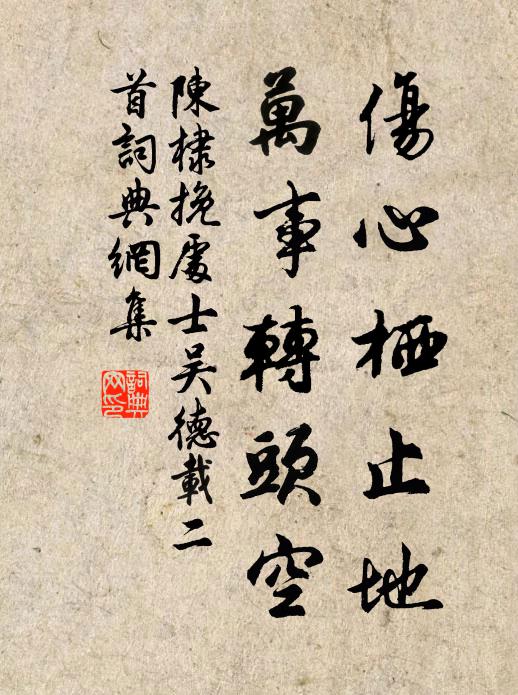 傷心栖止地
萬事轉頭空
陳棣挽處士吳德載二
首詞典網集
詞典
网印